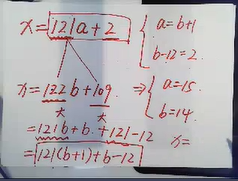 x = 121a + 2
{ a = b+1
b-12 = 2.
x = 122b + 109
⇒ { a = 15.
b = 14.
= 121b + b + 121 - 12
x =
= 121(b+1) + b - 12